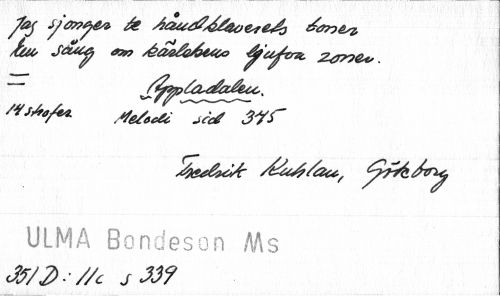 Jag sjonger te håndklaverets toner
Een sång om kärlekens ljufva zoner.
=
Appladalen.
14 strofer Melodi sid 375
Fredrik Kuhlau, Göteborg
ULMA Bondeson Ms
351 D: 11c s 339